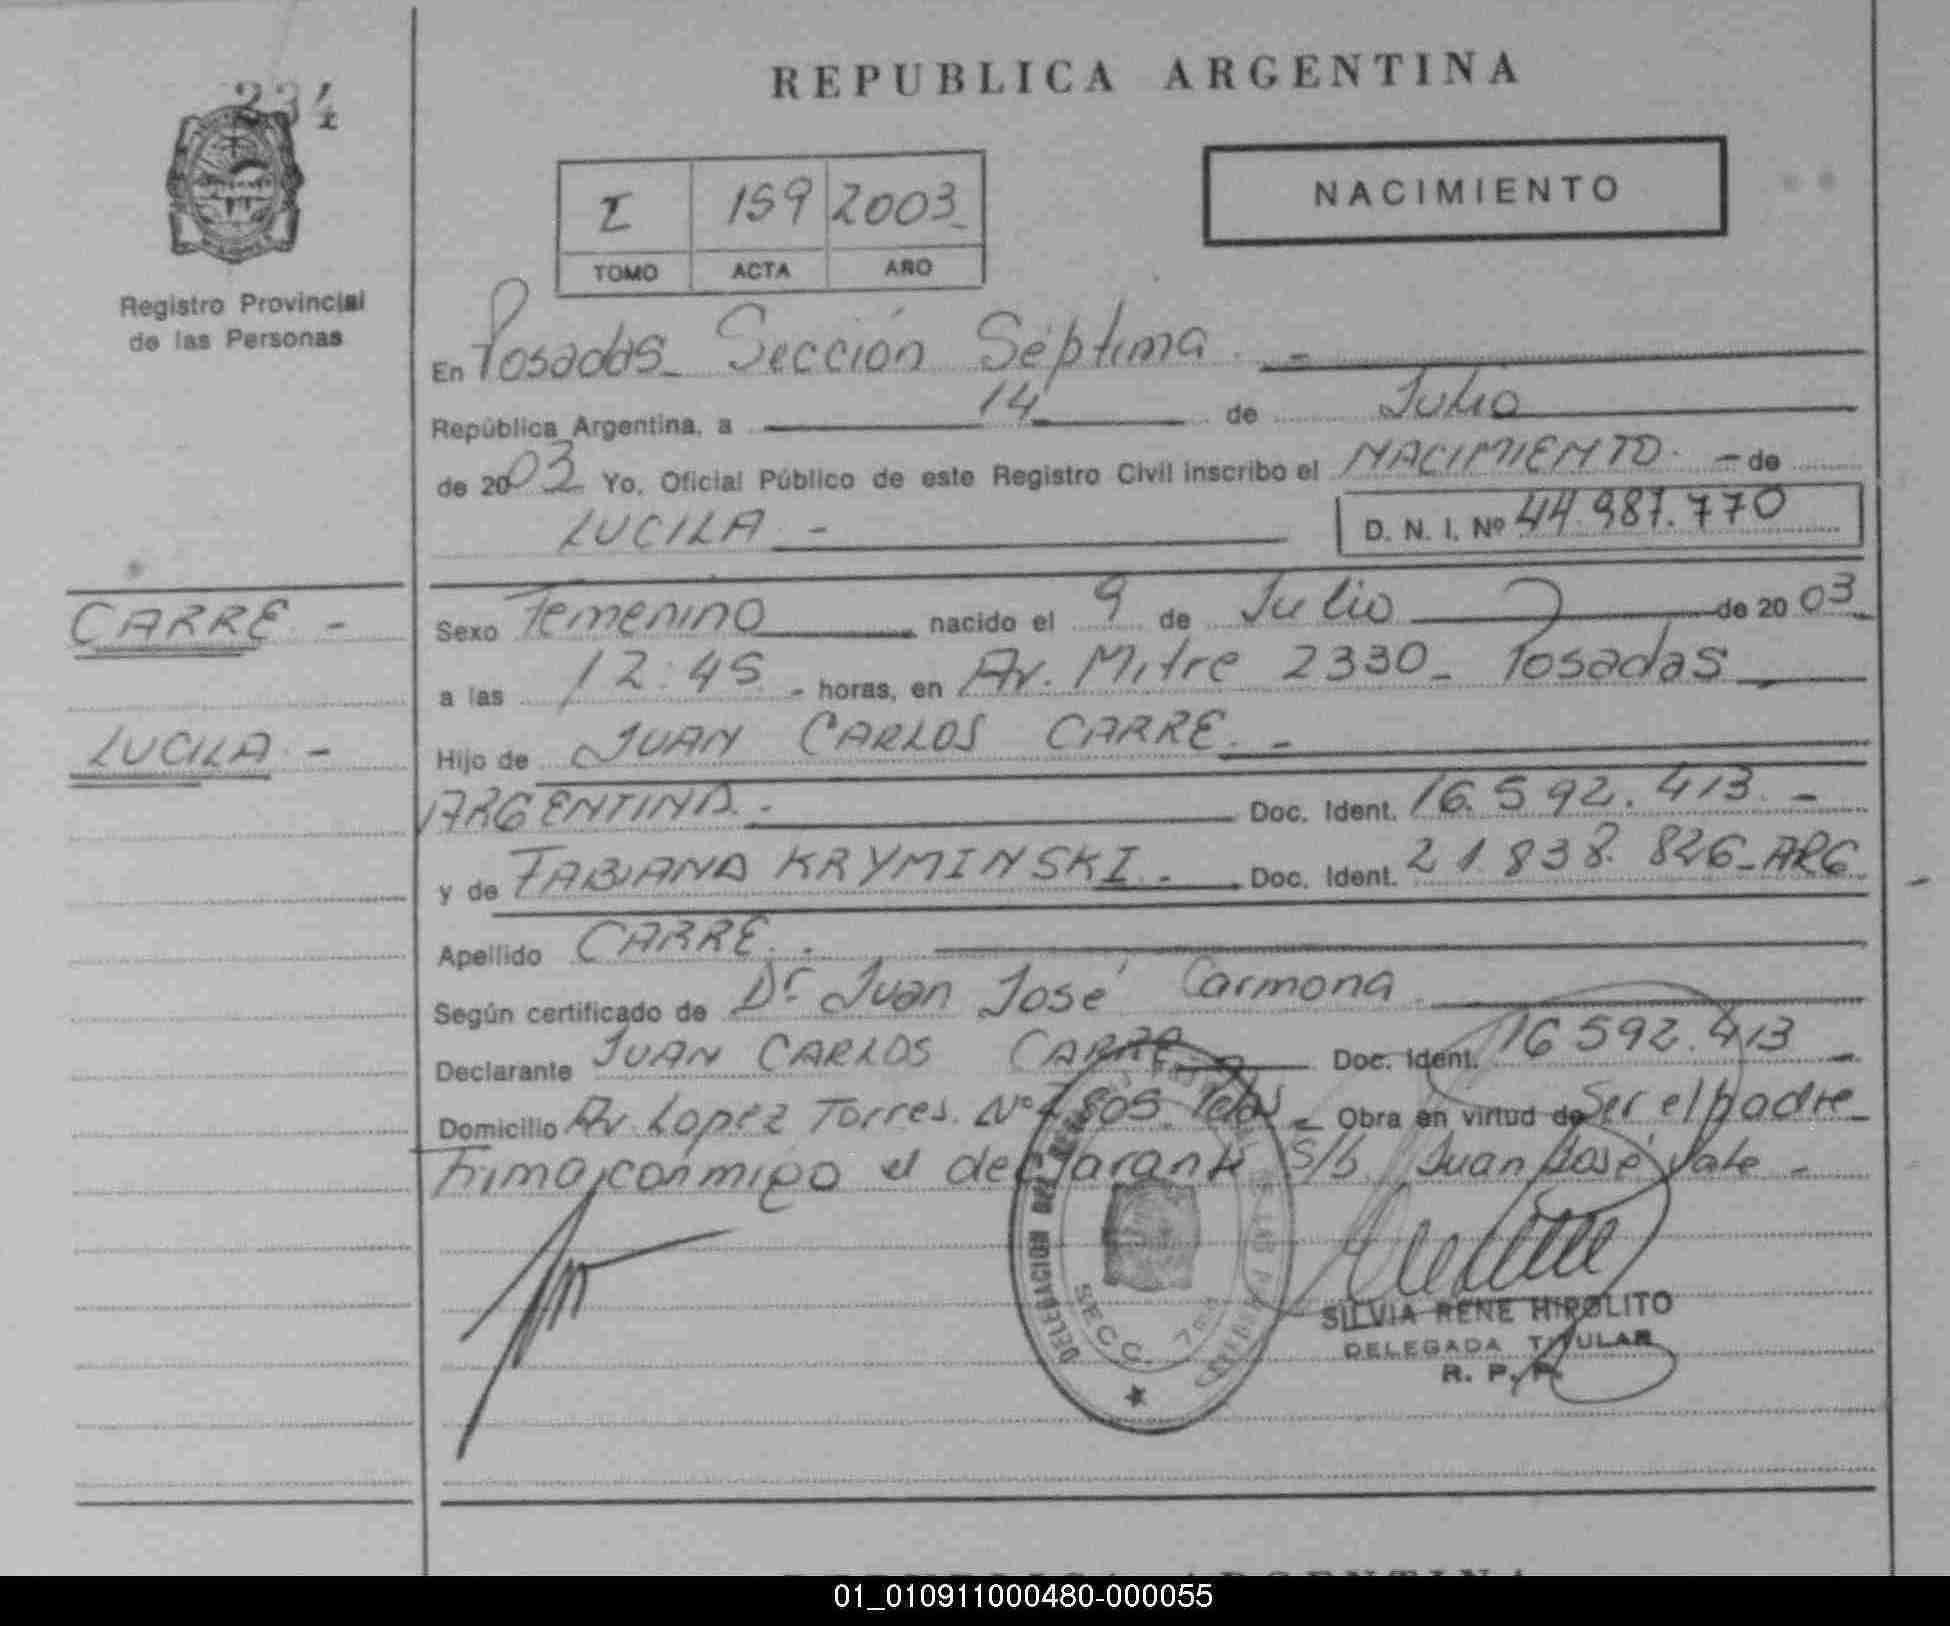 234
REPUBLICA ARGENTINA
I 159 2003
TOMO ACTA AÑO
NACIMIENTO
Registro Provincial
de las Personas
En Posadas Sección Séptima. -
República Argentina, a 14 de Julio
de 2003 Yo, Oficial Público de este Registro Civil inscribo el NACIMIENTO. - de
LUCILA - D. N. I. Nº 44.987.770
CARRE. -
Sexo Femenino nacido el 9 de Julio de 2003
a las 12:45 - horas, en Av. Mitre 2330 - Posadas
LUCILA. -
Hijo de JUAN CARLOS CARRE. -
ARGENTINA. - Doc. Ident. 16.592.413. -
y de FABIANA KRYMINSKI. - Doc. Ident. 21.838.826 - ARG.
Apellido CARRE. -
Según certificado de Dr. Juan José Carmona
Declarante JUAN CARLOS CARRE - Doc. Ident. 16.592.413 -
Domicilio Av. Lopez Torres Nº Pdas - Obra en virtud de Ser el padre -
firma conmigo el declarante S/b Juan José Vale -
DELEGACION DEL
SECC. 7
SILVIA RENE HIPOLITO
DELEGADA TITULAR
R. P. P.
REPUBLICA ARGENTINA
01_010911000480-000055